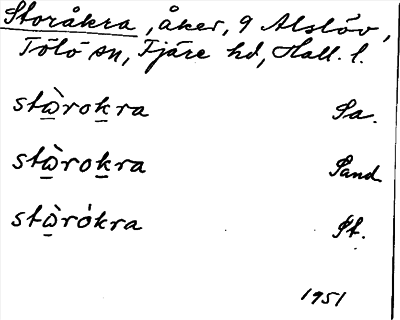 Storåkra, åker, 9 Alslöv,
Tölö sn, Fjäre hd, Hall. l.
stὼ̲rok̲ra Sa.
stὼ̲rok̲ra Sand
stὼ̲rókra St.
1951